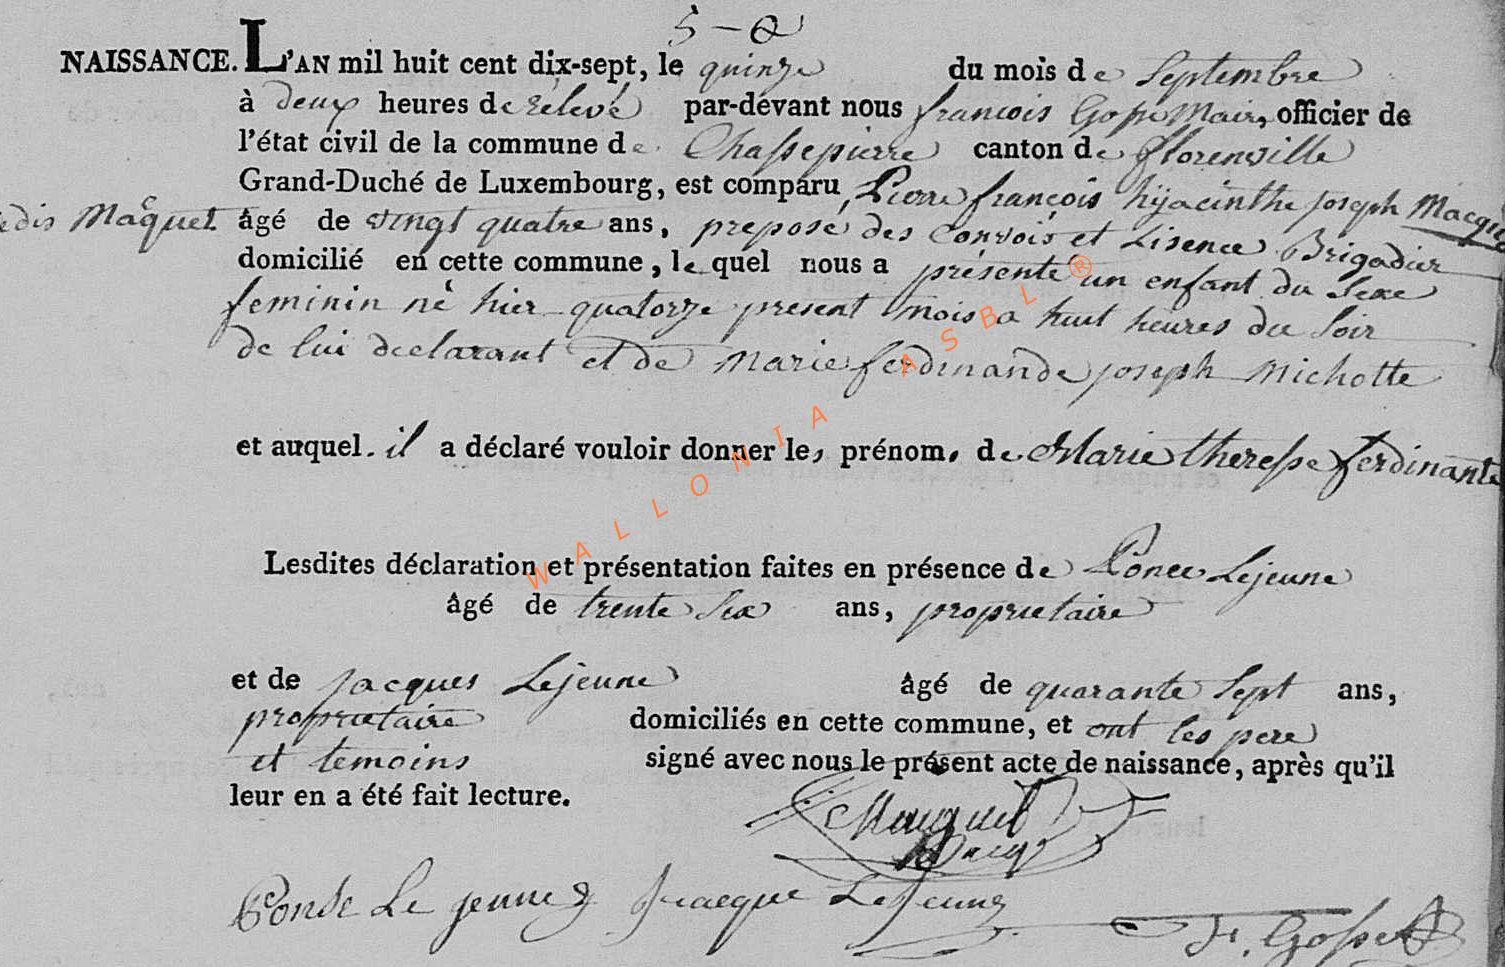 5 -
NAISSANCE. L'AN mil huit cent dix-sept, le quinze du mois de Septembre
à deux heures de rélevé par-devant nous francois Gosse Maire, officier de
l'état civil de la commune de Chassepierre canton de florenville
Grand-Duché de Luxembourg, est comparu Pierre françois hijacinthe joseph Macque
dis Maquet âgé de vingt quatre ans, préposé des Convois et Lisence Brigadier
domicilié en cette commune, lequel nous a présenté un enfant du Sexe
feminin né hier quatorze present mois a huit heures du Soir
de lui declarant et de Marie ferdinande joseph Michotte
et auquel il a déclaré vouloir donner les prénom. de Marie theresse ferdinante
Lesdites déclaration et présentation faites en présence de Ponce Lejeune
âgé de trente Six ans, proprietaire
et de jacques Lejeune âgé de quarante Sept ans,
proprietaire domiciliés en cette commune, et ont les pere
et temoins signé avec nous le présent acte de naissance, après qu'il
leur en a été fait lecture.
Mauquet
Ponse Le jeune Jacque Le Jeune
F. Gosset
WALLONIA ASBL ®